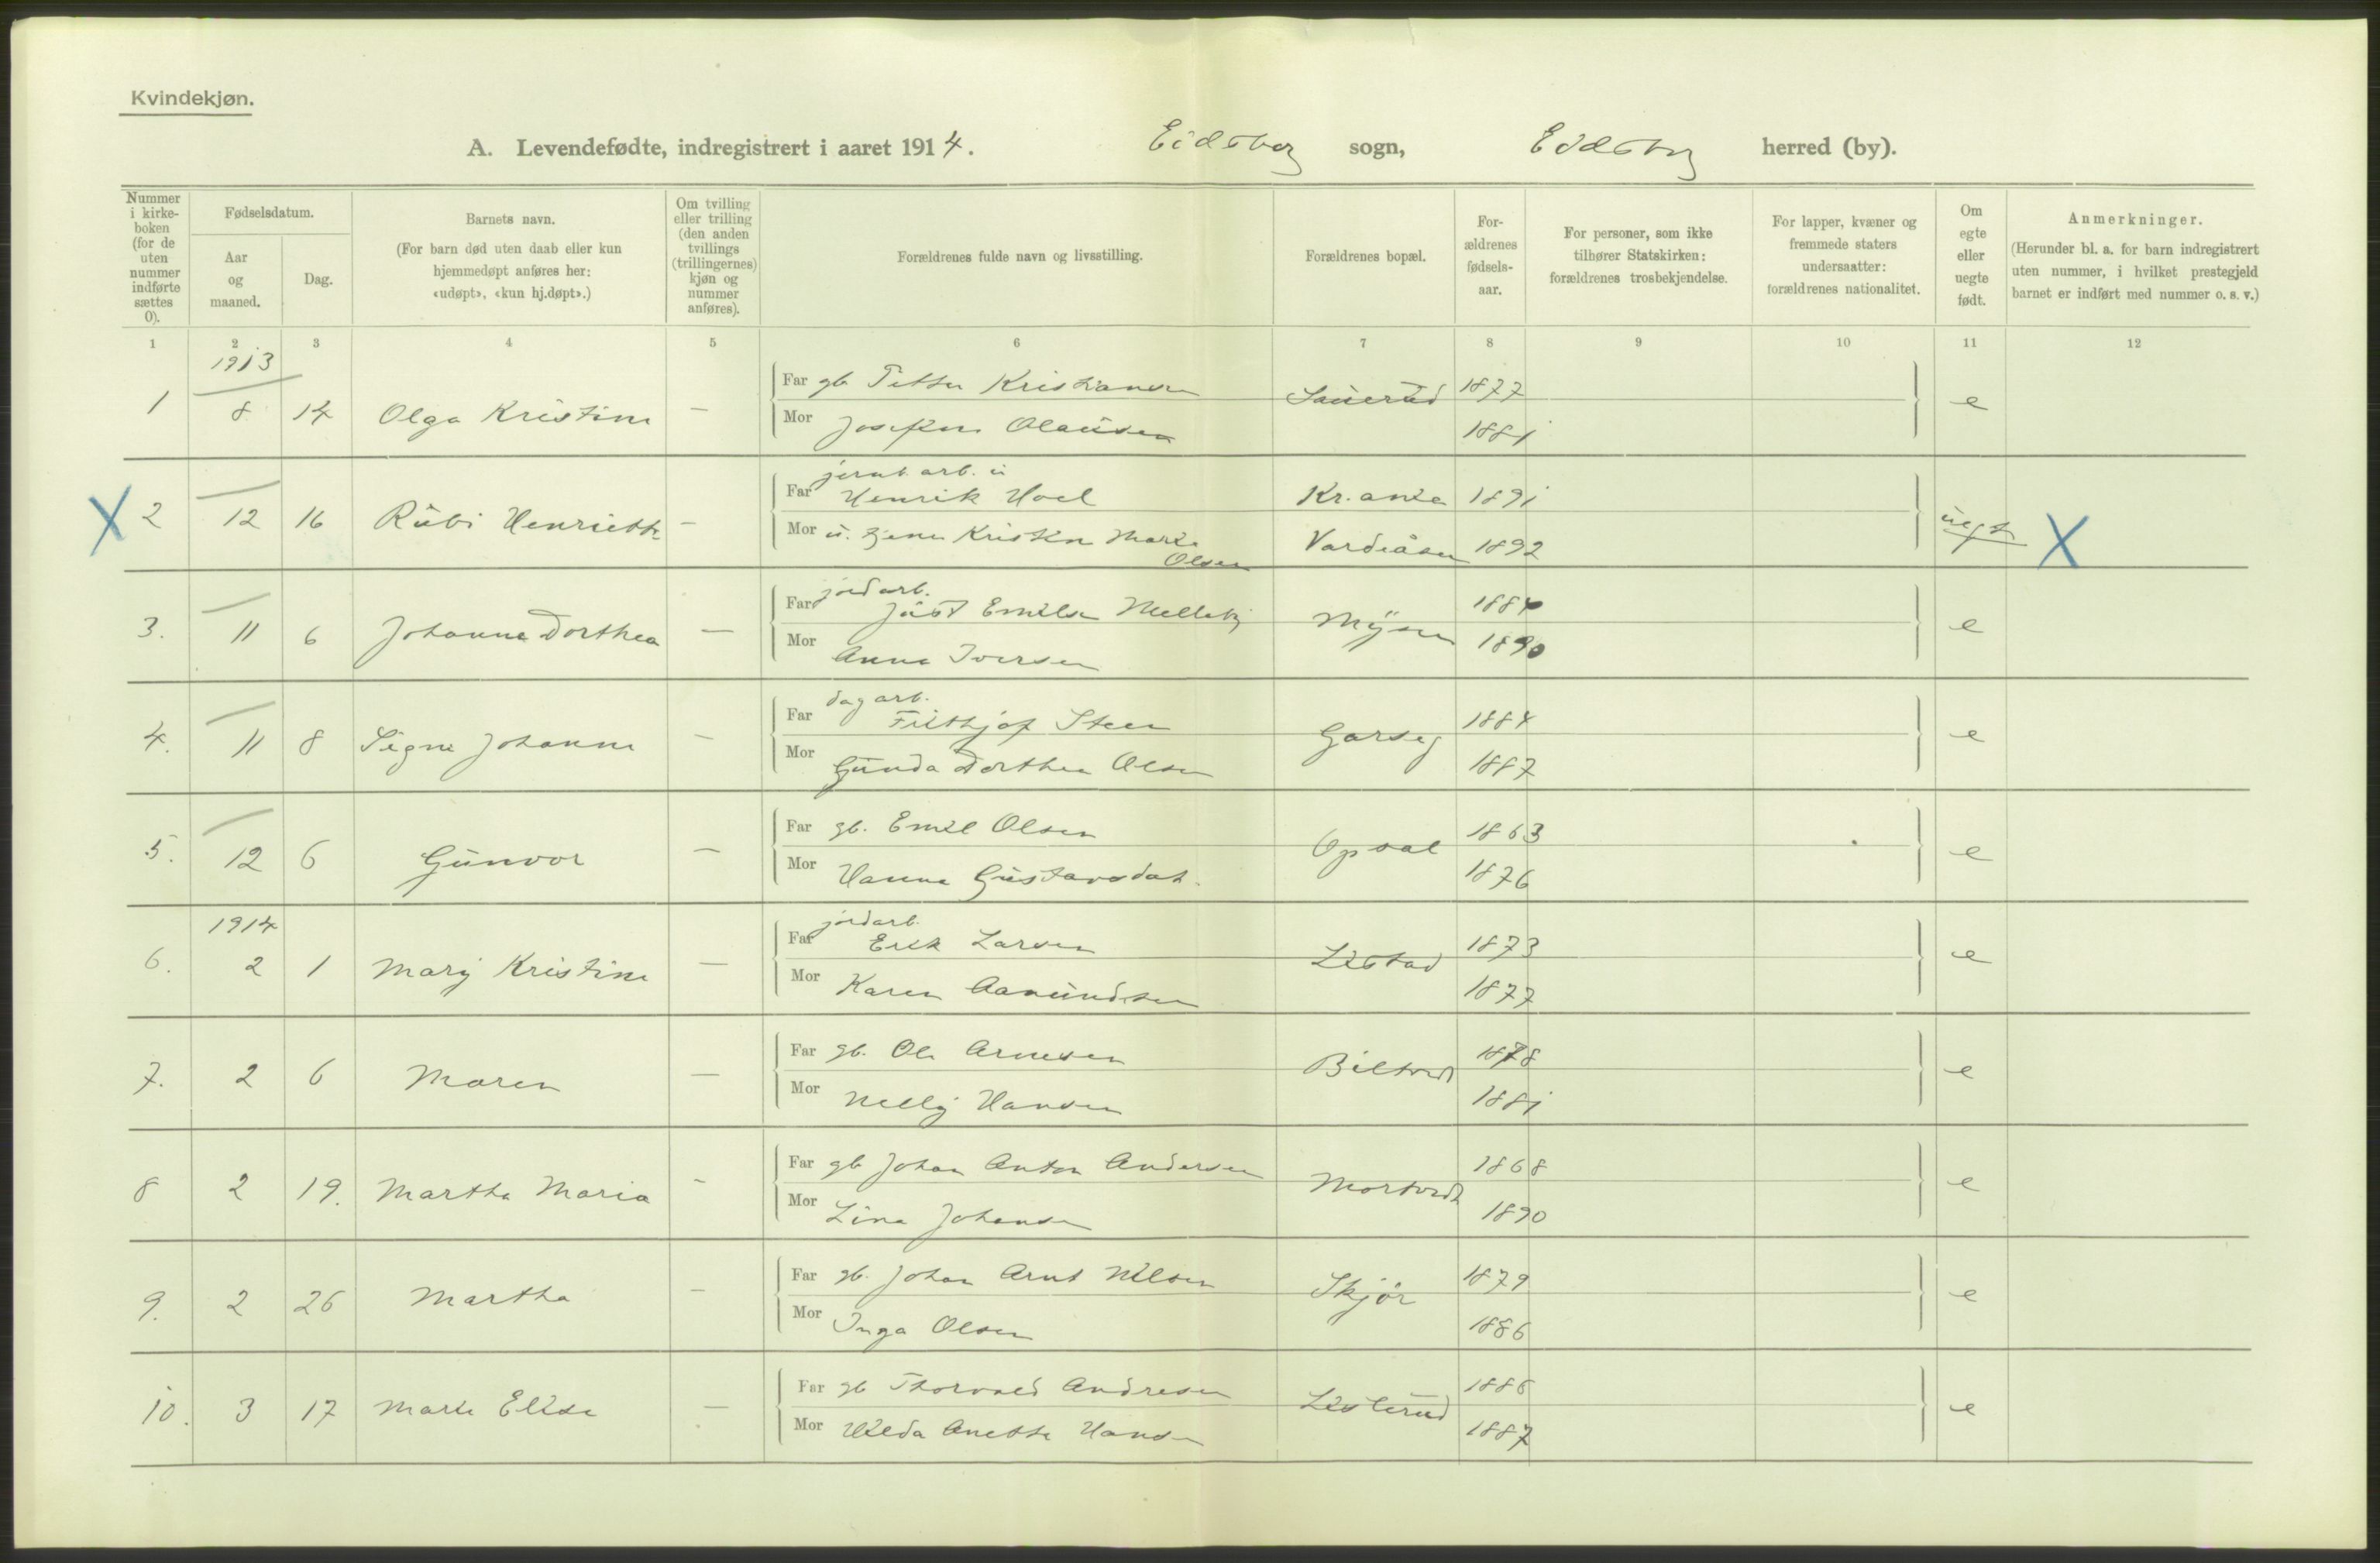 Kvindekjøn.
A. Levendefødte, indregistrert i aaret 1914. Eidsberg sogn, Eidsberg herred (by).
Nummer i kirke-boken (for de uten nummer indførte sættes 0).
Fødselsdatum.
Aar og maaned.
Dag.
Barnets navn.
(For barn død uten daab eller kun hjemmedøpt anføres her: «udøpt», «kun hj.døpt».)
Om tvilling eller trilling (den anden tvillings (trillingernes) kjøn og nummer anføres).
Forældrenes fulde navn og livsstilling.
Forældrenes bopæl.
For-ældrenes fødsels-aar.
For personer, som ikke tilhører Statskirken: forældrenes trosbekjendelse.
For lapper, kvæner og fremmede staters undersaatter: forældrenes nationalitet.
Om egte eller uegte født.
Anmerkninger.
(Herunder bl. a. for barn indregistrert uten nummer, i hvilket prestegjeld barnet er indført med nummer o. s. v.)
1 2 3 4 5 6 7 8 9 10 11 12
1913
1 8 14 Olga Kristine —
Far gb Petter Kristiansen Sauerud 1877
Mor Josefine Olausen 1881
e
X 2 12 16 Rubi Henriette —
jernb. arb. u
Far Henrik Hoel Kr.ania 1891
Mor u. tjene Kristin Marie Olsen Vardeåsen 1892
uegt X
3. 11 6 Johanne Dorthea —
jordarb.
Far Just Emilsen Melleby Mysen 1884
Mor Anna Iversen 1890
e
4. 11 8 Signe Johanne —
dagarb.
Far Frithjof Steen Garseg 1884
Mor Gunda Dorthea Olsen 1887
e
5. 12 6 Gunvor —
Far gb. Emil Olsen Opsal 1863
Mor Hanna Gustavsdat. 1876
e
1914
6. 2 1 Mary Kristine —
jordarb.
Far Erik Larsen Listad 1873
Mor Karen Aamundsen 1877
e
7. 2 6 Maren —
Far gb. Ole Arnesen 1878
Mor Nelly Hansen 1881
e
8 2 19. Martha Maria -
Far gb Johan Anton Andersen 1868
Mor Lina Johansen 1890
e
9. 2 26 Martha -
Far gb. Johan Arnt Nilsen Skjør 1879
Mor Inga Olsen 1886
e
10. 3 17 Marie Elise —
Far gb Thorvald Andresen Listerud 1885
Mor Hilda Anette Hansen 1887
e